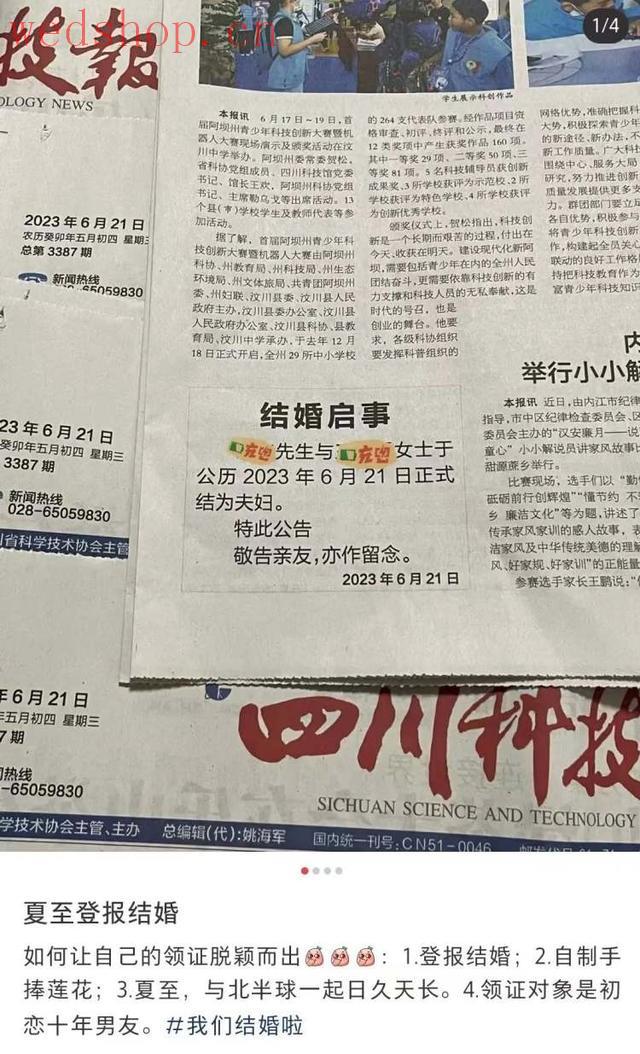 1/4
wedshop.cn
技報
OLOGY NEWS
学生展示科创作品
2023年6月21日
农历癸卯年五月初四 星期三
总第3387期
新闻热线
65059830
本报讯 6月17日~19日,首
届阿坝州青少年科技创新大赛暨机
器人大赛现场演示及颁奖活动在汶
川中学举办。阿坝州委常委贺松,
省科协党组成员、四川科技馆党委
书记、馆长王欢,阿坝州科协党组
书记、主席勒乌戈等出席活动。13
个县(市)学校学生及教师代表等参
加活动。
据了解,首届阿坝州青少年科
技创新大赛暨机器人大赛由阿坝州
科协、州教育局、州科技局、州生态
环境局、州文体旅局、共青团阿坝州
委、州妇联、汶川县委、汶川县人民
政府主办,汶川县委办公室、汶川县
人民政府办公室、汶川县科协、县教
育局、汶川中学承办,于去年12月
18日正式开启,全州29所中小学校
的264支代表队参赛。经作品项目资
格审查、初评、终评和公示,最终在
12类奖项中产生获奖作品160项。
其中一等奖29项、二等奖50项、三
等奖81项。5名科技辅导员获创新
成果奖,3所学校获评示范校、2所
学校获评特色学校、4所学校获评
为创新优秀学校。
颁奖仪式上,贺松指出,科技创
新是一个长期而艰苦的过程,付出在
今天、收获在明天。建设现代化新阿
坝,需要包括青少年在内的全州人民
团结奋斗,更需要依靠科技创新的有
力支撑和科技人员的无私奉献,这是
时代的号召,也是
创业的舞台。他要
求,各级科协组织
要发挥科普组织的
网络优势,准确把握科
大势,积极探索青少年
的新途径、新办法,不
新工作质量。广大科技
围绕中心、服务大局
研究,努力推进创新
质量发展提供更多
力。群团部门要立足
各自优势,积极参与
将青少年科技创新
作,构建起全员关心
联动的良好工作格局
持把科技教育作为
富青少年科技知识
内
举行小小解
本报讯 近日,由内江市纪律
指导,市中区纪律检查委员会、区
委员会主办的“汉安廉月——说
童心”小小解说员讲家风故事比
甜源蔗乡举行。
比赛现场,选手们以“勤
砥砺前行创辉煌”“懂节约 不
乡 廉洁文化”等为题,讲述了
传承家风家训的感人故事,表
洁家风及中华传统美德的理解
风、好家规、好家训”的正能量
参赛选手家长王鹏说:“
结婚启事
充电先生与充电女士于
公历2023年6月21日正式
结为夫妇。
特此公告
敬告亲友,亦作留念。
2023年6月21日
23年6月21日
癸卯年五月初四 星期三
3387期
新闻热线
028-65059830
川省科学技术协会主管
年6月21日
年五月初四 星期三
7期
闻热线
-65059830
四川科技
SICHUAN SCIENCE AND TECHNOLOGY
学技术协会主管、主办 总编辑(代):姚海军 国内统一刊号:CN51-0046
夏至登报结婚
如何让自己的领证脱颖而出:1.登报结婚;2.自制手
捧莲花;3.夏至,与北半球一起日久天长。4.领证对象是初
恋十年男友。#我们结婚啦